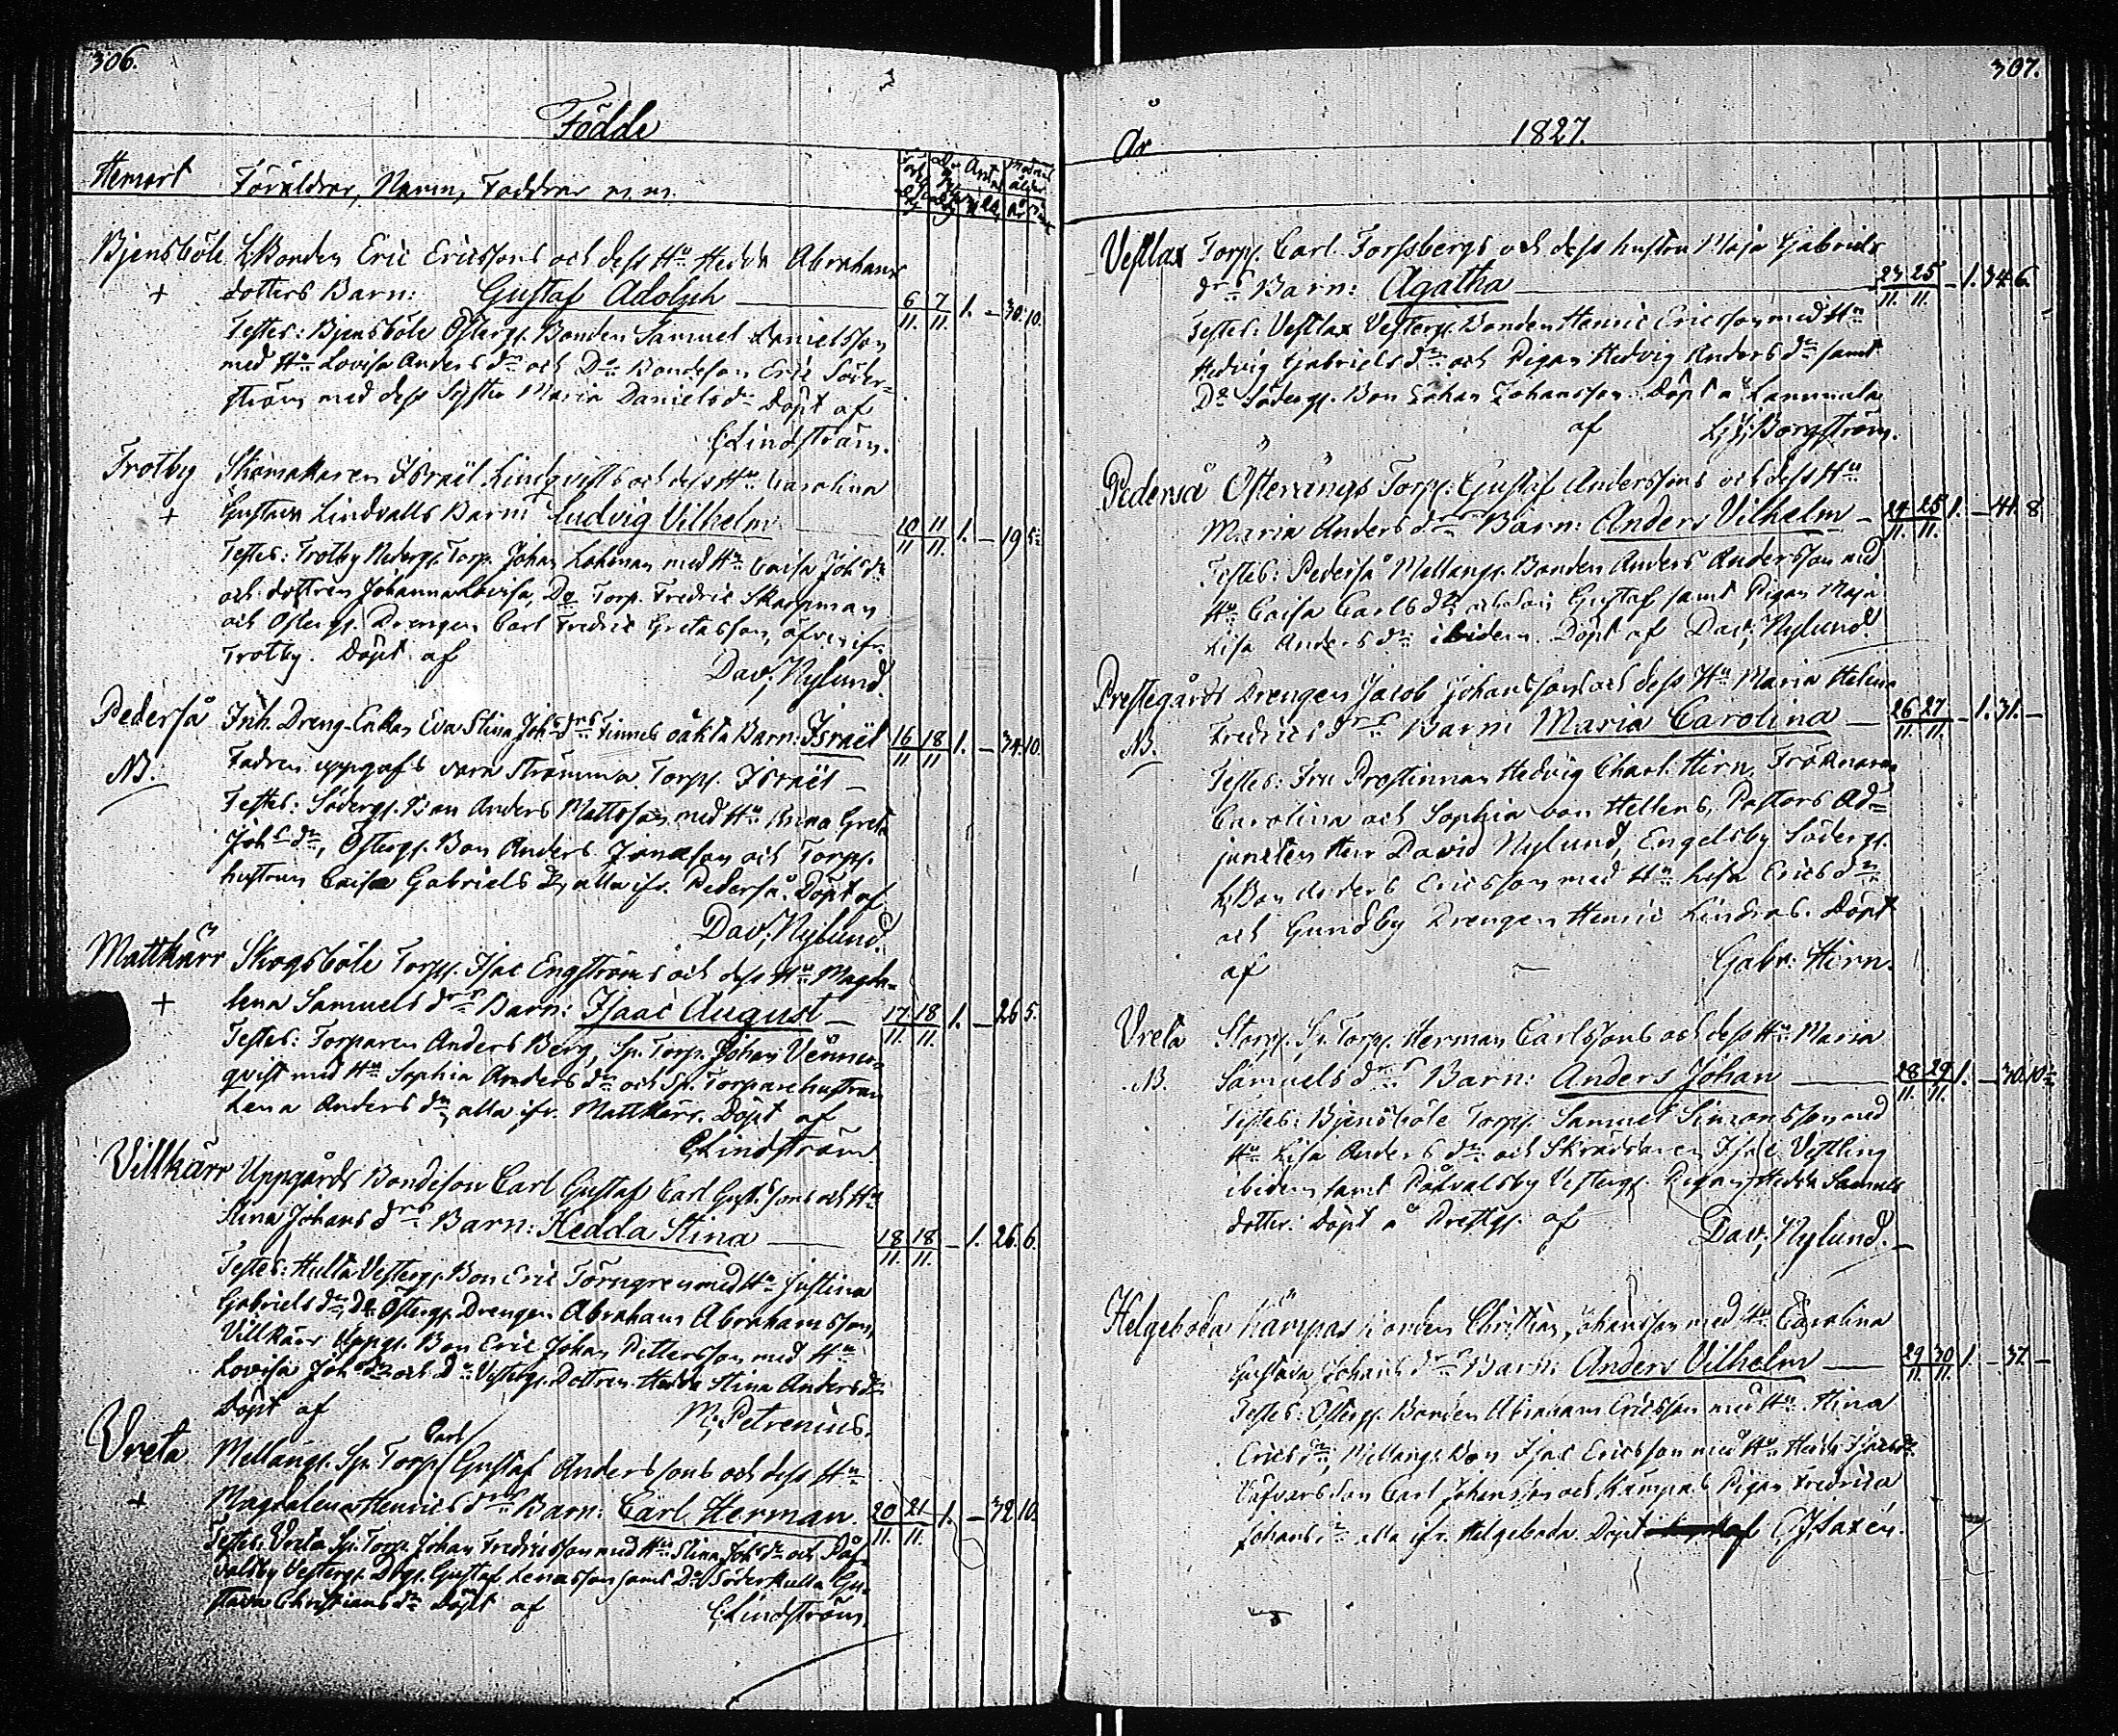 306.
Födde
Hemort Föräldrar, Namn, Faddrar m.m.
Bjensböle LBonden Eric Ericssons och dess Hu Hedda Abrahams
+ dotters Barn: Gustaf Adolph — 6/11. 7/11. 1. – 30. 10.
Testes: Bjensböle Östergs. Bonden Samuel Danielsson
med Hu Lovisa Anders dr och Do Bondeson Eric Söder=
ström med dess Syster Maria Daniels dr Döpt af
C: Lindström.
Trotby Skomakaren Israël Lindqvists och dess Hu Carolina
+ Gustava Lindvalls Barn Ludvig Vilhelm 10/11 11/11. 1. – 19 5
Testes: Trotby Nedergs. Torp. Johan Lohman med Hu Caisa Johs dr
och dottren Johanna Lovisa, Do Torp. Fredric Skarpman
och Östergs. Drengen Carl Fredric Gretasson, äfven ifr.
Trotby. Döpt af
Dav; Nylund.
Pederså Inh. Dreng-Enkan Eva Stina Johs drs Finnes oäkta Barn: Israël 16/11 18/11 1. – 34. 10.
NB. Fadren uppgafs vara Strömma Torps. Israël –
Testes: Södergs. Bon Anders Mattsson med Hu Anna Greta
Johs dr, Östergs. Bon Anders Jonasson och Torps.
hustrun Caisa Gabriels dr, alla ifr. Pederså. Döpt af
Dav; Nylund.
Mattkärr Skogsböle Torps. Isac Engströms och dess Hu Magda=
+ lena Samuels drs Barn: Isaac August — 17/11. 18/11. 1. – 26 5.
Testes: Torparen Anders Berg, Sp. Torp. Johan Venner=
qvist med Hu Sophia Anders dr och Sp. Torparehustrun
Lena Anders dr, alla ifr. Mattkärr. Döpt af
C: Lindström
Villkärr Uppgårds Bondeson Carl Gustaf Carl Gust.sons och Hu
Stina Johans drs Barn: Hedda Stina — 18/11. 18/11. – 1. 26. 6.
Testes: Hulta Vestergs. Bon Eric Törngren med Hu Justina
Gabriels dr, Do Östergs. Drengen Abraham Abrahamsson,
Villkärr Uppgs. Bon Eric Johan Pettersson med Hu
Lovisa Johs dr och Do Vestergs. Dottren Hedda Stina Anders dr
Döpt af M; Petrenius.
Vreta Mellangs. Sp. Torp. Carl Gustaf Anderssons och dess Hu
+ Magdalena Henrics drs Barn: Carl Herman. 20/11. 21/11. 1. – 32 10.
Testes: Vreta Sp. Torp. Johan Fredricsson med Hu Stina Johs dr och Påf=
valsby Vestergs. Drgs. Gustaf Lenasson samt Do Söderkulla Gu=
stava Christians dr Döpt af C: Lindström.
307.
År 1827.
Vestlax Torps. Carl Forssbergs och dess hustru Maja Gabriels
drs Barn: Agatha — 23/11. 25/11. – 1. 34 6.
Testes: Vestlax Vestergs. Bonden Henric Ericsson med Hu
Hedvig Gabriels dr och Pigan Hedvig Anders dr samt
Do Södergs. Bon Johan Johansson. Döpt å Lammala
af Borgström.
Pederså Österängs Torps. Gustaf Anderssons och dess Hu
Maria Anders drs Barn: Anders Vilhelm – 24/11. 25/11. 1. – 41 8
Testes: Pederså Mellangs. Bonden Anders Andersson med
Hu Caisa Carls dr och son Gustaf samt Pigan Maja
Lisa Anders dr ibidem. Döpt af Dav; Nylund.
Prestegårds Drengen Jacob Johanssons och dess Hu Maria Helena
NB. Fredrics drs Barn: Maria Carolina — 26/11. 27/11. – 1. 31. –
Testes: Fru Prostinnan Hedvig Charl. Hirn, Fröknarna
Carolina och Sophia von Hellens, Pastors Ad=
juncten Herr David Nylund, Engelsby Södergs.
LBon Anders Ericsson med Hu Lisa Erics dr
och Gundby Drengen Henric Lindros. Döpt
af Gabr: Hirn.
Vreta Storgs. Sp. Torps. Herman Carlssons och dess Hu Maria
NB. Samuels drs Barn: Anders Johan — 28/11. 29/11. 1. – 30. 10
Testes: Bjensböle Torps. Samuel Simonsson med
Hu Lisa Anders dr och Skräddaren Isac Vestling
ibidem samt Påvalsby Vestergs. Pigan Hedda Samuels
dotter. Döpt å Prestgs. af Dav; Nylund.
Helgeboda Kämpas Bonden Christian Johansson med Hu Carolina
Gustava Johans drs Barn: Anders Vilhelm — 29/11. 30/11. 1. – 37. –
Testes: Östergs. Bonden Abraham Ericsson med Hu Stina
Erics dr, Mellangs. Bon Isac Ericsson med Hu Hedda Isacs dr
Carl Johansson och Kämpas Pigan Fredrica
Johans dr alla ifr. Helgeboda. Döpt af C J Saxén.